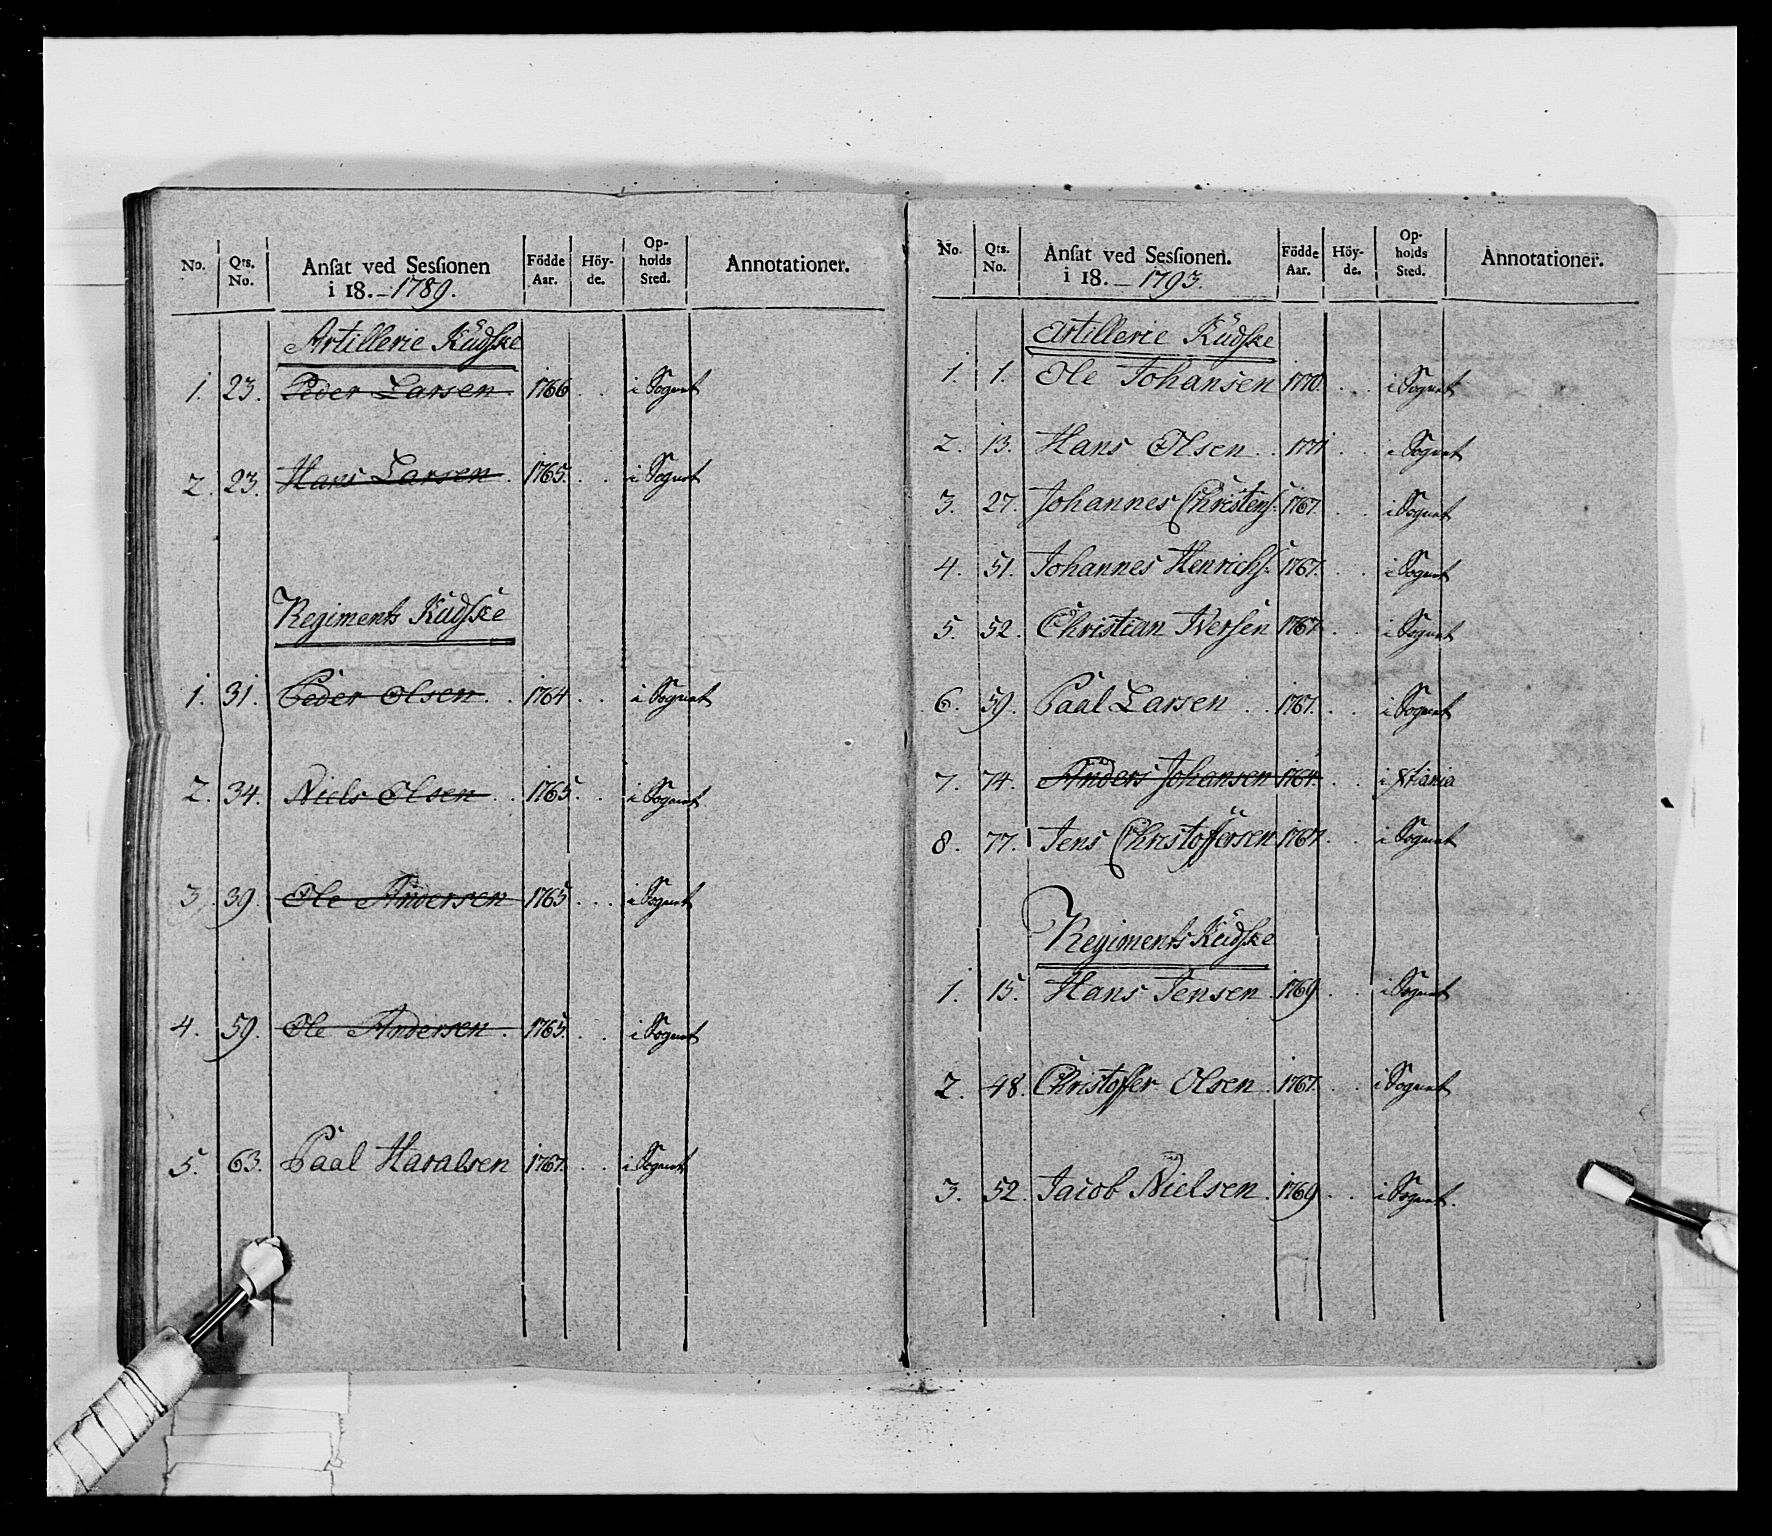 No. Qts. No. Ansat ved Sessionen i 18.–1789. Födde Aar. Höy-de. Op-holds Sted. Annotationer.
Artillerie Kudske
1. 23. Peder Larsen. 1766 . . i Sognet
2. 23. Hans Larsen. 1765. . . i Sognet
Regiments Kudske
1. 31. Peder Olsen. . 1764 . . i Sognet
2. 34. Niels Olsen . . 1765. . . i Sognet
3. 39. Ole Andersen 1765 . . . i Sognet
4. 59. Ole Andersen. 1765. . . i Sognet
5. 63. Paal Haralsen 1767. . . i Sognet
No. Qts. No. Ansat ved Sessionen. i 18.–1793. Födde Aar. Höy-de. Op-holds Sted. Annotationer.
Artillerie Kudske
1. 1. Ole Johansen 1770. . . i Sognet
2. 13. Hans Olsen. . 1771. . i Sognet
3. 27. Johannes Christens. 1767. . . i Sognet
4. 51. Johannes Henrichs. 1767. . . i Sognet
5. 52. Christian Iversen 1767. . . i Sognet
6. 59. Paal Larsen . . 1767. . . i Sognet
7. 74. Anders Johansen 1764. . . i Xtiania
8. 77. Jens Christoffersen 1767. . . i Sognet
Regiments Kudske
1. 15. Hans Jensen. 1769 . . i Sognet
2. 48. Christoffer Olsen. 1767. . . i Sognet
3. 52. Jacob Nielsen. 1769 . . i Sognet.